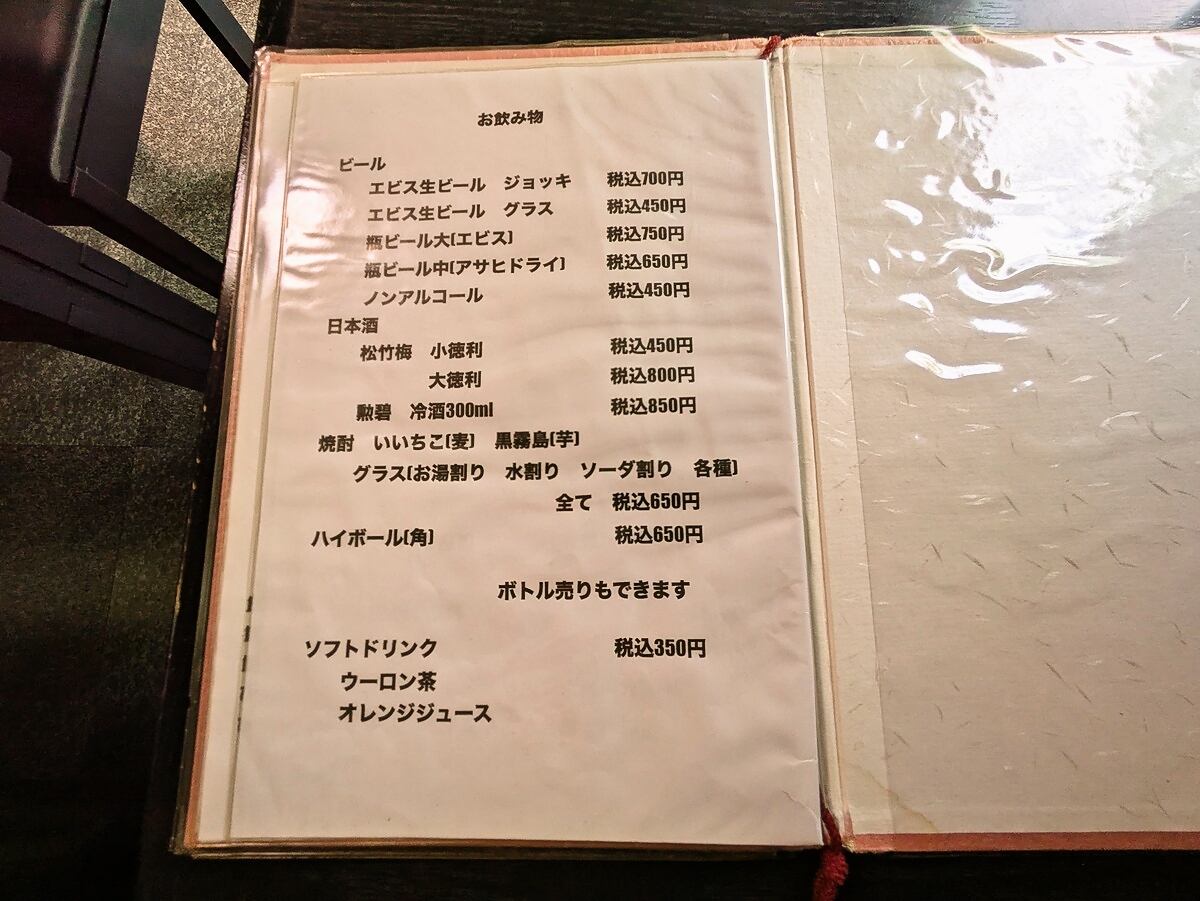 お飲み物
ビール
エビス生ビール ジョッキ 税込700円
エビス生ビール グラス 税込450円
瓶ビール大(エビス) 税込750円
瓶ビール中(アサヒドライ) 税込650円
ノンアルコール 税込450円
日本酒
松竹梅 小徳利 税込450円
大徳利 税込800円
勲碧 冷酒300ml 税込850円
焼酎 いいちこ(麦) 黒霧島(芋)
グラス(お湯割り 水割り ソーダ割り 各種)
全て 税込650円
ハイボール(角) 税込650円
ボトル売りもできます
ソフトドリンク 税込350円
ウーロン茶
オレンジジュース